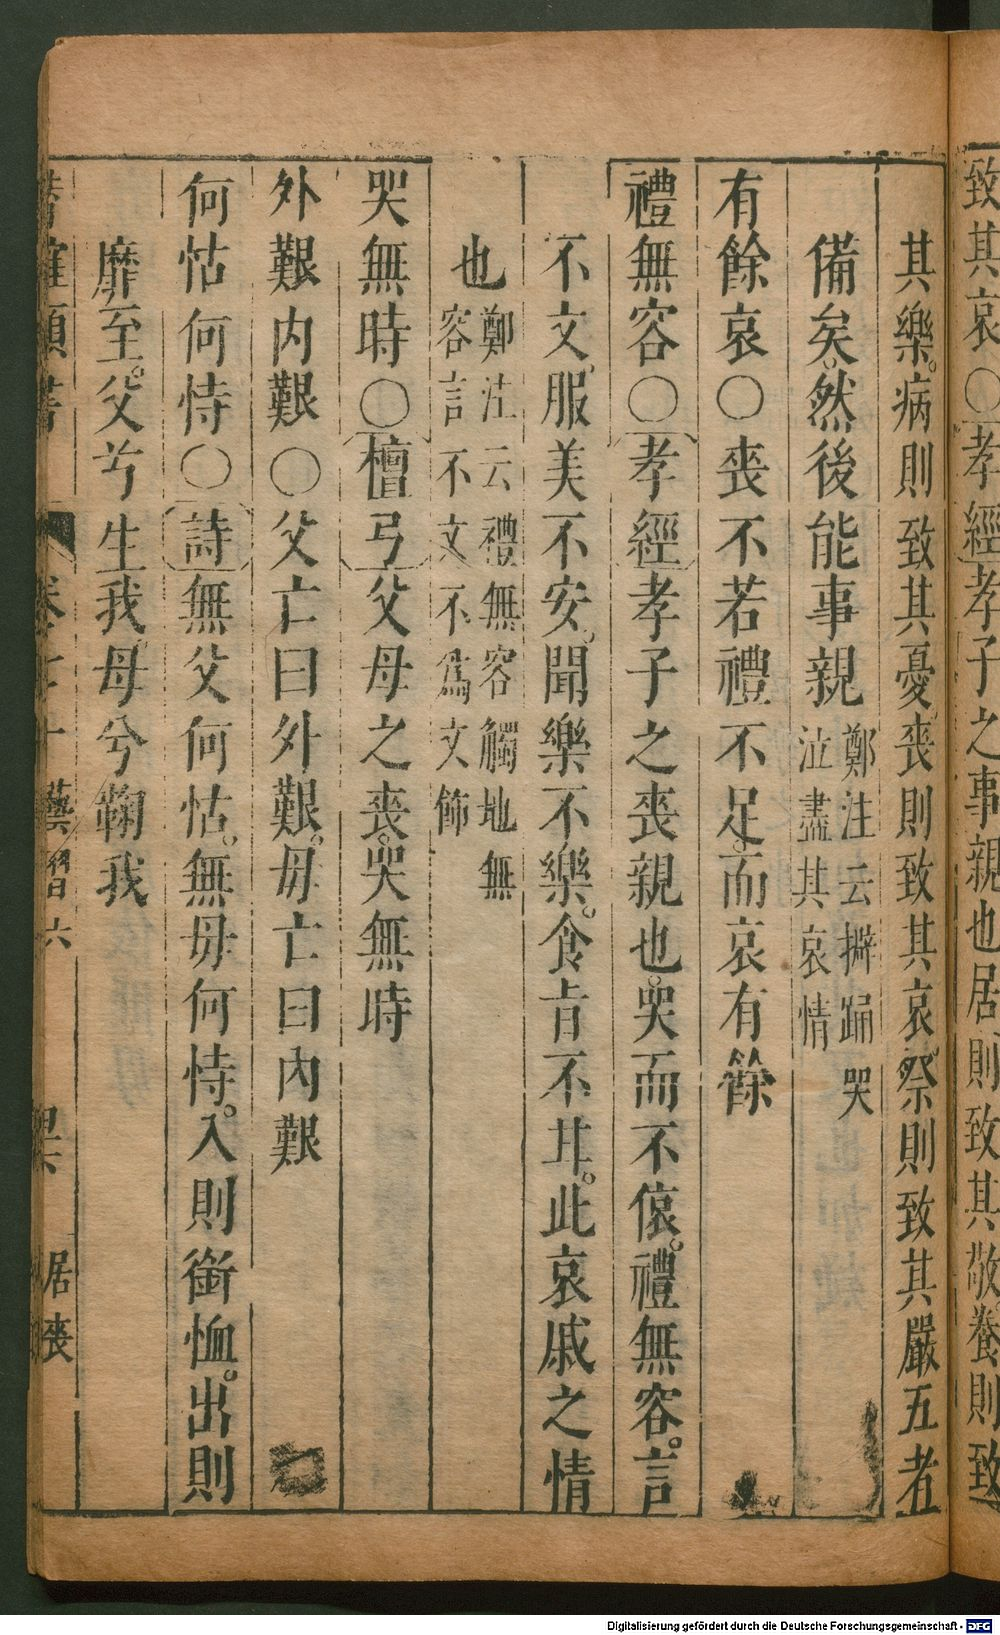 致其哀○孝經孝子之事親也居則致其敬養則致
其樂。病則致其憂。喪則致其哀。祭則致其嚴五者
備矣。然後能事親鄭注云擗踊哭
泣盡其哀情
有餘哀○喪不若禮不足。而哀有餘
禮無容○孝經孝子之喪親也。哭而不偯。禮無容。言
不文。服美不安。聞樂不樂。食旨不甘。此哀戚之情
也鄭注云禮無容觸地無
容言不文不為文飾
哭無時○檀弓父母之喪。哭無時
外艱内艱○父亡曰外艱。毋亡曰内艱
何怙何恃○詩無父何怙。無毋何恃。入則銜恤。出則
靡至。父兮生我。母兮鞠我
卷 藝習六 居喪
Digitalisierung gefördert durch die Deutsche Forschungsgemeinschaft - DFG